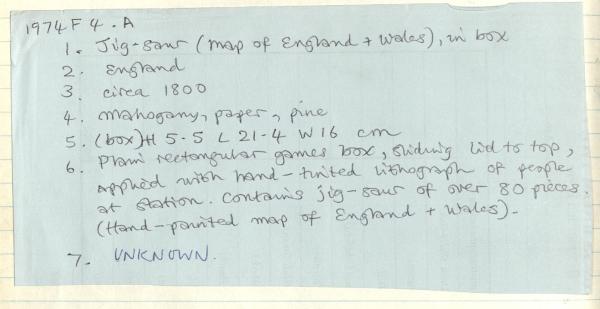 1974 F 4 . A
1. Jig-saw (map of England + Wales), in box
2. England
3. circa 1800
4. mahogany, paper, pine
5. (box) H 5-5 L 21-4 W 16 cm
6. Plain rectangular games box, sliding lid to top,
applied with hand-tinted lithograph of people
at station. Contains jig-saw of over 80 pieces.
(Hand-painted map of England + Wales).
7. UNKNOWN.